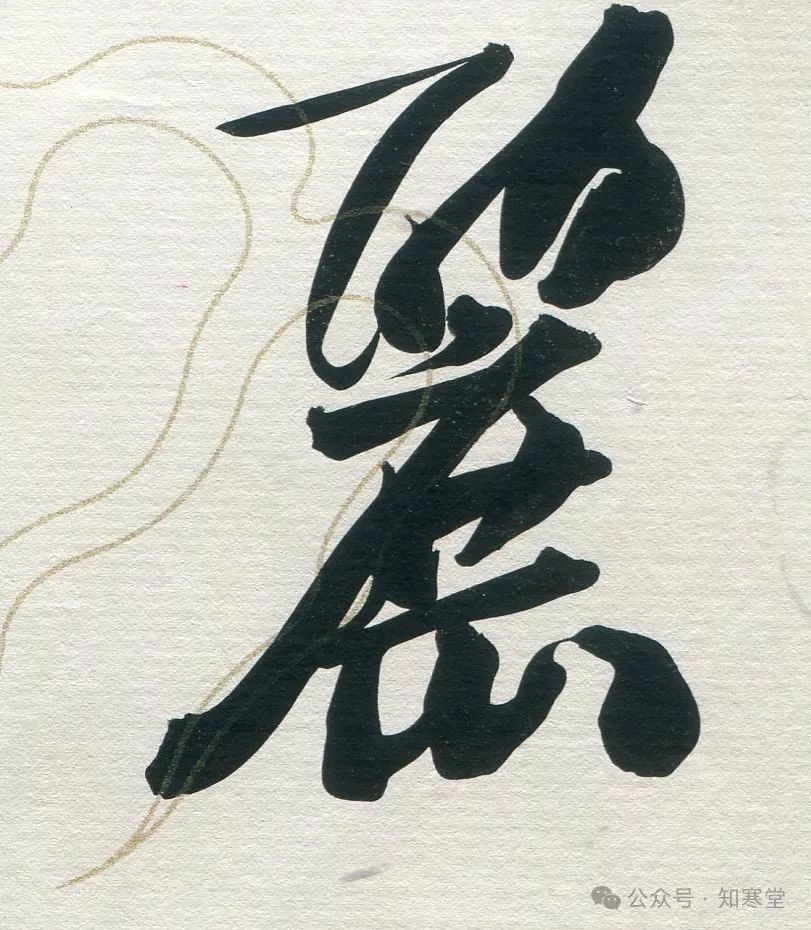 麗
公众号 · 知寒堂